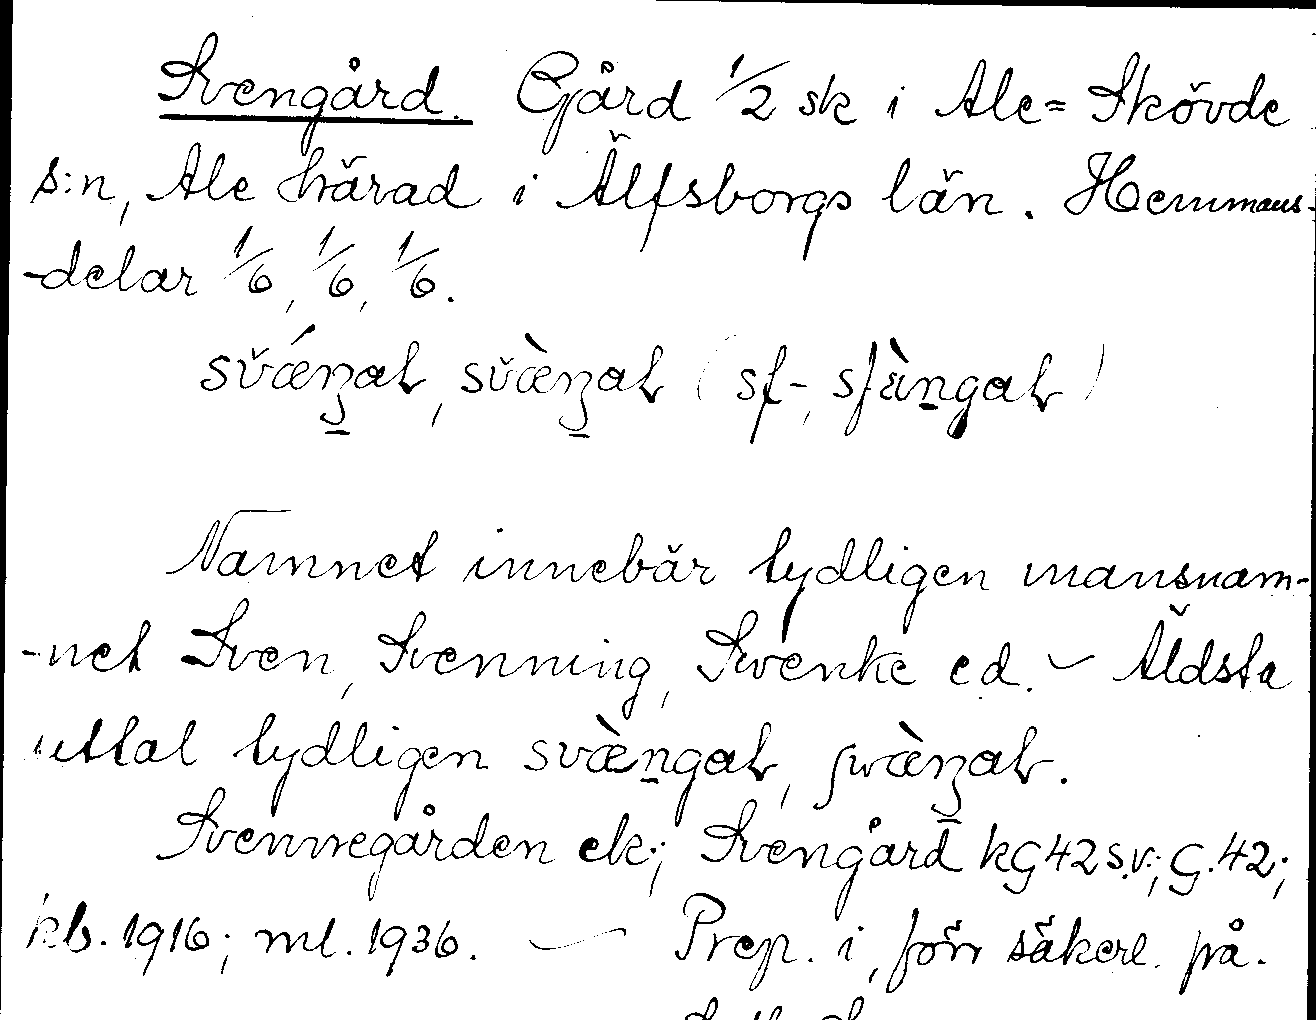 Svengård. Gård 1/2 sk i Ale= Skövde
s:n, Ale härad i Älfsborgs län. Hemmans-
-delar 1/6, 1/6, 1/6.
svǽŋaɽ, svæ̀ŋaɽ (sf-, sfæ̀ngaɽ)
Namnet innebär tydligen mansnam-
-net Sven, Svenning, Svenke ed. ~ Äldsta
uttal tydligen svæ̀ngaɽ, swæ̀ŋaɽ.
Svennegården ek.; Svengård kG42 s.v.; G.42;
kb. 1916; ml. 1936. — Prep. i, förr säkerl. på.